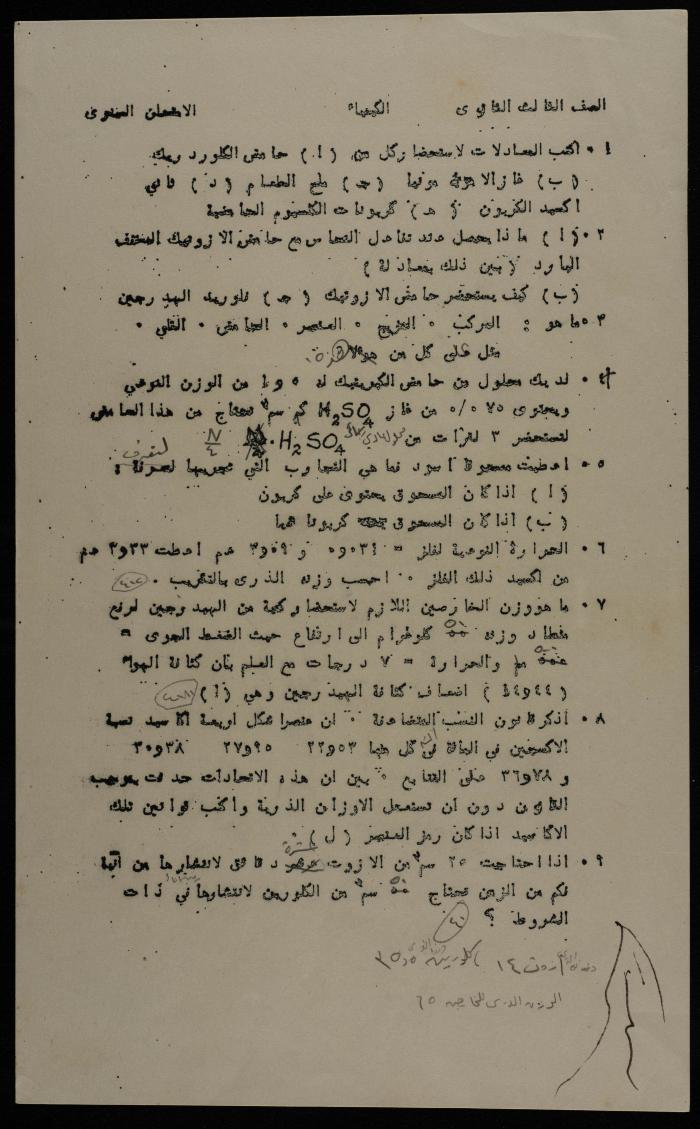 الصف الثالث الثانوي الكيمياء الامتحان السنوي
١ ٠ اكتب المعادلات لاستحضار كل من (ا) حامض الكلوردريك
(ب) غاز الامونيا (جـ) ملح الطعام (د) ثاني
اكسيد الكربون (هـ) كربونات الكلسيوم الحامضية
٢ ٠ (ا) ماذا يحصل عند تفاعل النحاس مع حامض الازوتيك المخفف
البارد (بين ذلك بمعادلة)
(ب) كيف يستحضر حامض الازوتيك (جـ) كلوريد الهدرجين
٣ ٠ ما هو : المركب ٠ المزيج ٠ العنصر ٠ الحامض ٠ القلي ٠
مثل على كل من هؤلاء
٤ ٠ لديك محلول من حامض الكبريتيك له ١٫٥ من الوزن النوعي
ويحتوى ٧٥ ٥/٥ من غاز H₂SO₄ كم سم٣ تحتاج من هذا الحامض
لتستحضر ٣ لترات من H₂SO₄ N/٤
٥ ٠ اعطيت مسحوقا اسود فما هي التجارب التي تجريها لتعرف :
(ا) اذا كان المسحوق يحتوى على كربون
(ب) اذا كان المسحوق كربونا نقيا
٦ ٠ الحرارة النوعية لفلز = ٠٫٠٣١ و ٣٫٠٩ غم اعطت ٣٫٣٣ غم
من اكسيد ذلك الفلز ٠ احسب وزنه الذرى بالتقريب ٠
٧ ٠ ما هو وزن الخارصين اللازم لاستحضار كمية من الهيدرجين لرفع
منطاد وزنه ٥٠ كلوغرام الى ارتفاع حيث الضغط الجوى =
٥٠٠ ملم والحرارة = ٧ درجات مع العلم بان كثافة الهواء
(١٤٫٤٤) اضعاف كثافة الهيدرجين وهي (١)
٨ ٠ اذكر قانون النسب المتضاعفة ٠ ان عنصرا شكل اربعة اكاسيد نسبة
الاكسجين في المائة في كل منها ٢٢٫٥٣ ٢٧٫٩٥ ٣٠٫٣٨
و ٣٦٫٧٨ على التتابع ٠ بين ان هذه الاتحادات حدثت بموجب
القانون دون ان تستعمل الاوزان الذرية واكتب قوانين تلك
الاكاسيد اذا كان رمز العنصر (ل)
٩ ٠ اذا احتاجت ٢٥ سم٣ من الازوت عشرة دقائق لانتشارها من آنية
فكم من الزمن تحتاج ٥٠ سم٣ من الكلورين لانتشارها في ذات
الشروط ؟
ازوت ١٤ كلورين ٣٥٫٥
الوزن الذرى للخارصين ٦٥